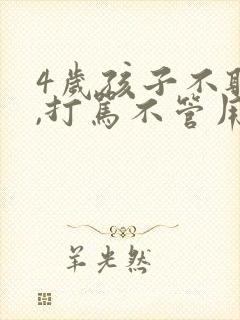 4歲孩子不
,打罵不管用
羊光然